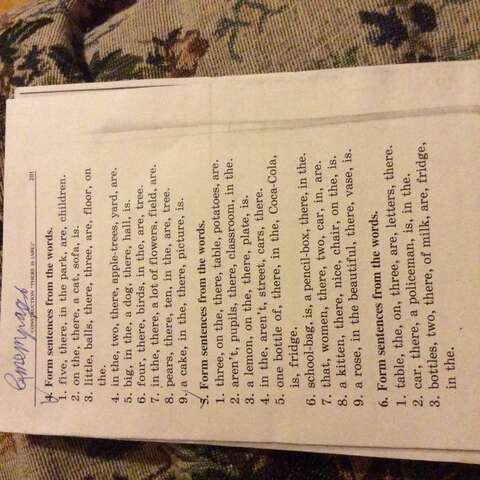 CONSTRUCTION "THERE IS (ARE)" 201
4. Form sentences from the words.
1. five, there, in the park, are, children.
2. on the, there, a cat, sofa, is.
3. little, balls, there, three, are, floor, on
the.
4. in the, two, there, apple-trees, yard, are.
5. big, in the, a dog, there, hall, is.
6. four, there, birds, in the, are, tree.
7. in the, there, a lot of flowers, field, are.
8. pears, there, ten, in the, are, tree.
9. a cake, in the, there, picture, is.
5. Form sentences from the words.
1. three, on the, there, table, potatoes, are.
2. aren't, pupils, there, classroom, in the.
3. a lemon, on the, there, plate, is.
4. in the, aren't, street, cars, there.
5. one bottle of, there, in the, Coca-Cola,
is, fridge.
6. school-bag, is, a pencil-box, there, in the.
7. that, women, there, two, car, in, are.
8. a kitten, there, nice, chair, on the, is.
9. a rose, in the beautiful, there, vase, is.
6. Form sentences from the words.
1. table, the, on, three, are, letters, there.
2. car, there, a policeman, is, in the.
3. bottles, two, there, of milk, are, fridge,
in the.